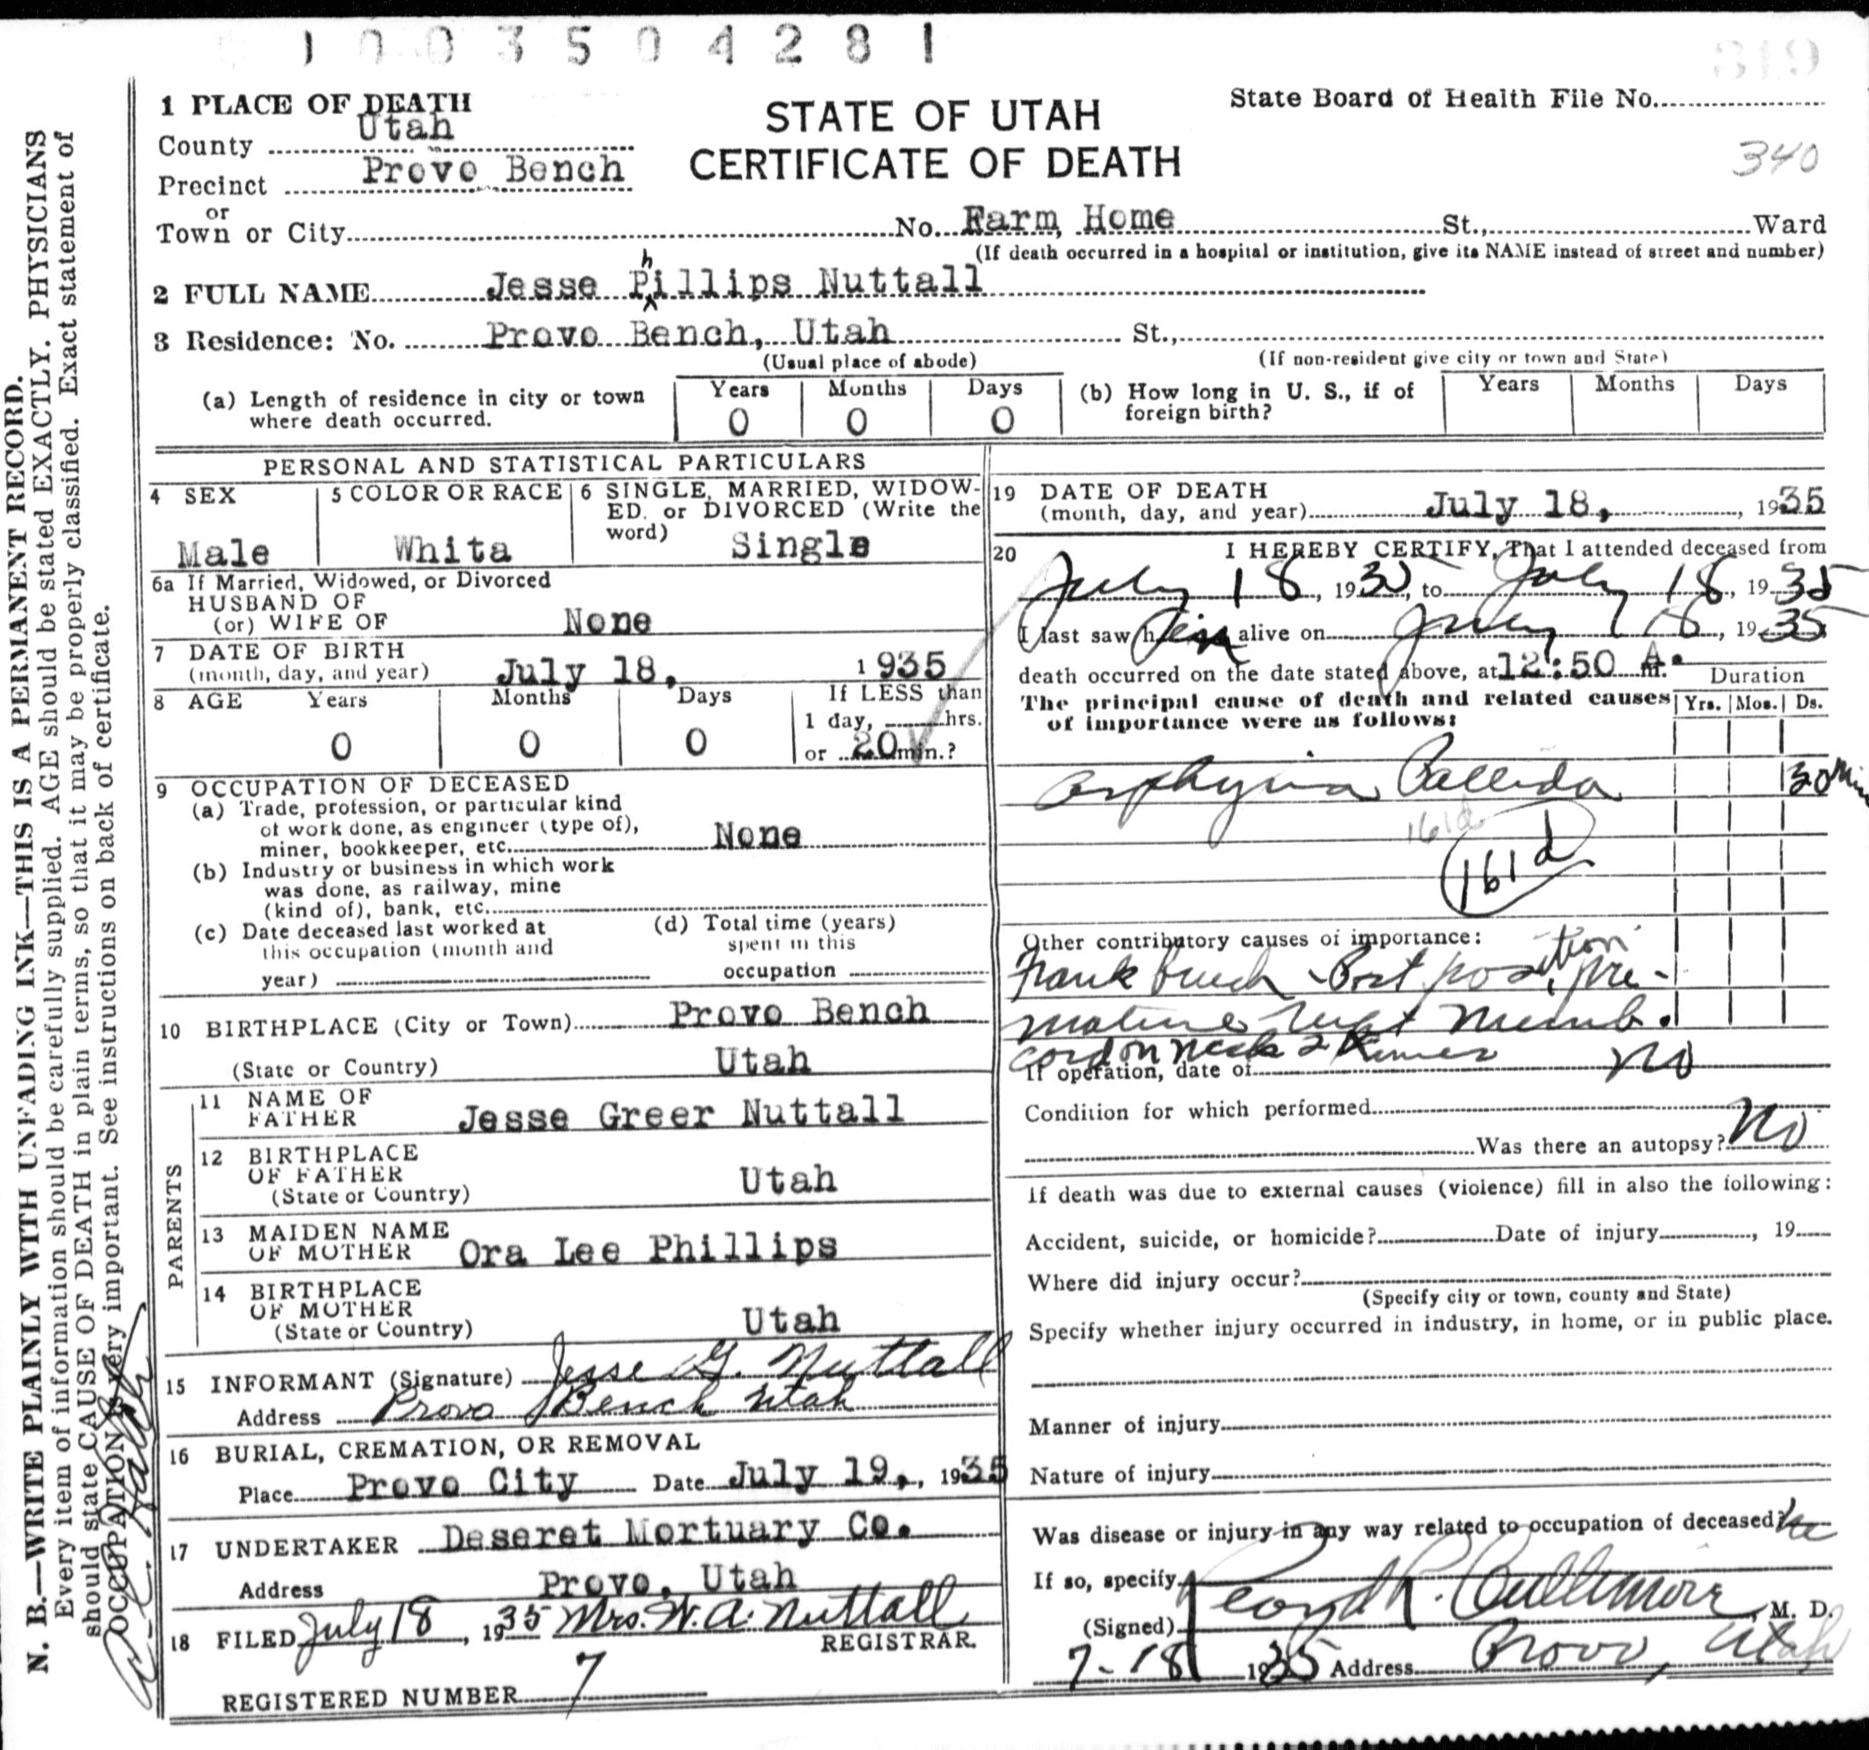 1003504281
319
1 PLACE OF DEATH
STATE OF UTAH
CERTIFICATE OF DEATH
State Board of Health File No.
340
County Utah
Precinct Provo Bench
or
Town or City No. Farm Home St., Ward
(If death occurred in a hospital or institution, give its NAME instead of street and number)
h
2 FULL NAME Jesse Pillips Nuttall
3 Residence: No. Provo Bench, Utah St.,
(Usual place of abode) (If non-resident give city or town and State)
(a) Length of residence in city or town where death occurred. Years 0 Months 0 Days 0
(b) How long in U. S., if of foreign birth? Years Months Days
PERSONAL AND STATISTICAL PARTICULARS
4 SEX Male
5 COLOR OR RACE Whita
6 SINGLE, MARRIED, WIDOW-
ED. or DIVORCED (Write the
word) Single
6a If Married, Widowed, or Divorced
HUSBAND OF
(or) WIFE OF None
7 DATE OF BIRTH
(month, day, and year) July 18, 1935
8 AGE Years Months Days If LESS than
1 day, hrs.
0 0 0 or 20 min.?
9 OCCUPATION OF DECEASED
(a) Trade, profession, or particular kind
of work done, as engineer (type of),
miner, bookkeeper, etc. None
(b) Industry or business in which work
was done, as railway, mine
(kind of), bank, etc.
(c) Date deceased last worked at
this occupation (month and
year)
(d) Total time (years)
spent in this
occupation
10 BIRTHPLACE (City or Town) Provo Bench
(State or Country) Utah
PARENTS
11 NAME OF
FATHER Jesse Greer Nuttall
12 BIRTHPLACE
OF FATHER
(State or Country) Utah
13 MAIDEN NAME
OF MOTHER Ora Lee Phillips
14 BIRTHPLACE
OF MOTHER
(State or Country) Utah
15 INFORMANT (Signature) Jesse G. Nuttall
Address Provo Bench Utah
16 BURIAL, CREMATION, OR REMOVAL
Place Provo City Date July 19, 1935
17 UNDERTAKER Deseret Mortuary Co.
Address Provo, Utah
18 FILED July 18, 1935 Mrs. W. A. Nuttall
REGISTRAR.
REGISTERED NUMBER 7
19 DATE OF DEATH
(month, day, and year) July 18, 1935
20 I HEREBY CERTIFY, That I attended deceased from
July 18, 1935, to July 18, 1935
I last saw him alive on July 18, 1935
death occurred on the date stated above, at 12:50 A. m.
The principal cause of death and related causes
of importance were as follows:
Duration
Yrs. Mos. Ds.
Asphyxia Pallida 30 Min
161d
161d
Other contributory causes of importance:
Frank Breech - Post position, pre-
mature rupt Memb.
cord on neck 2 times
If operation, date of No
Condition for which performed
Was there an autopsy? No
If death was due to external causes (violence) fill in also the following:
Accident, suicide, or homicide? Date of injury , 19
Where did injury occur?
(Specify city or town, county and State)
Specify whether injury occurred in industry, in home, or in public place.
Manner of injury
Nature of injury
Was disease or injury in any way related to occupation of deceased? No
If so, specify
(Signed) Cullimore, M. D.
7-18 1935 Address Provo, Utah
N. B.—WRITE PLAINLY WITH UNFADING INK—THIS IS A PERMANENT RECORD.
Every item of information should be carefully supplied. AGE should be stated EXACTLY. PHYSICIANS
should state CAUSE OF DEATH in plain terms, so that it may be properly classified. Exact statement of
OCCUPATION is very important. See instructions on back of certificate.